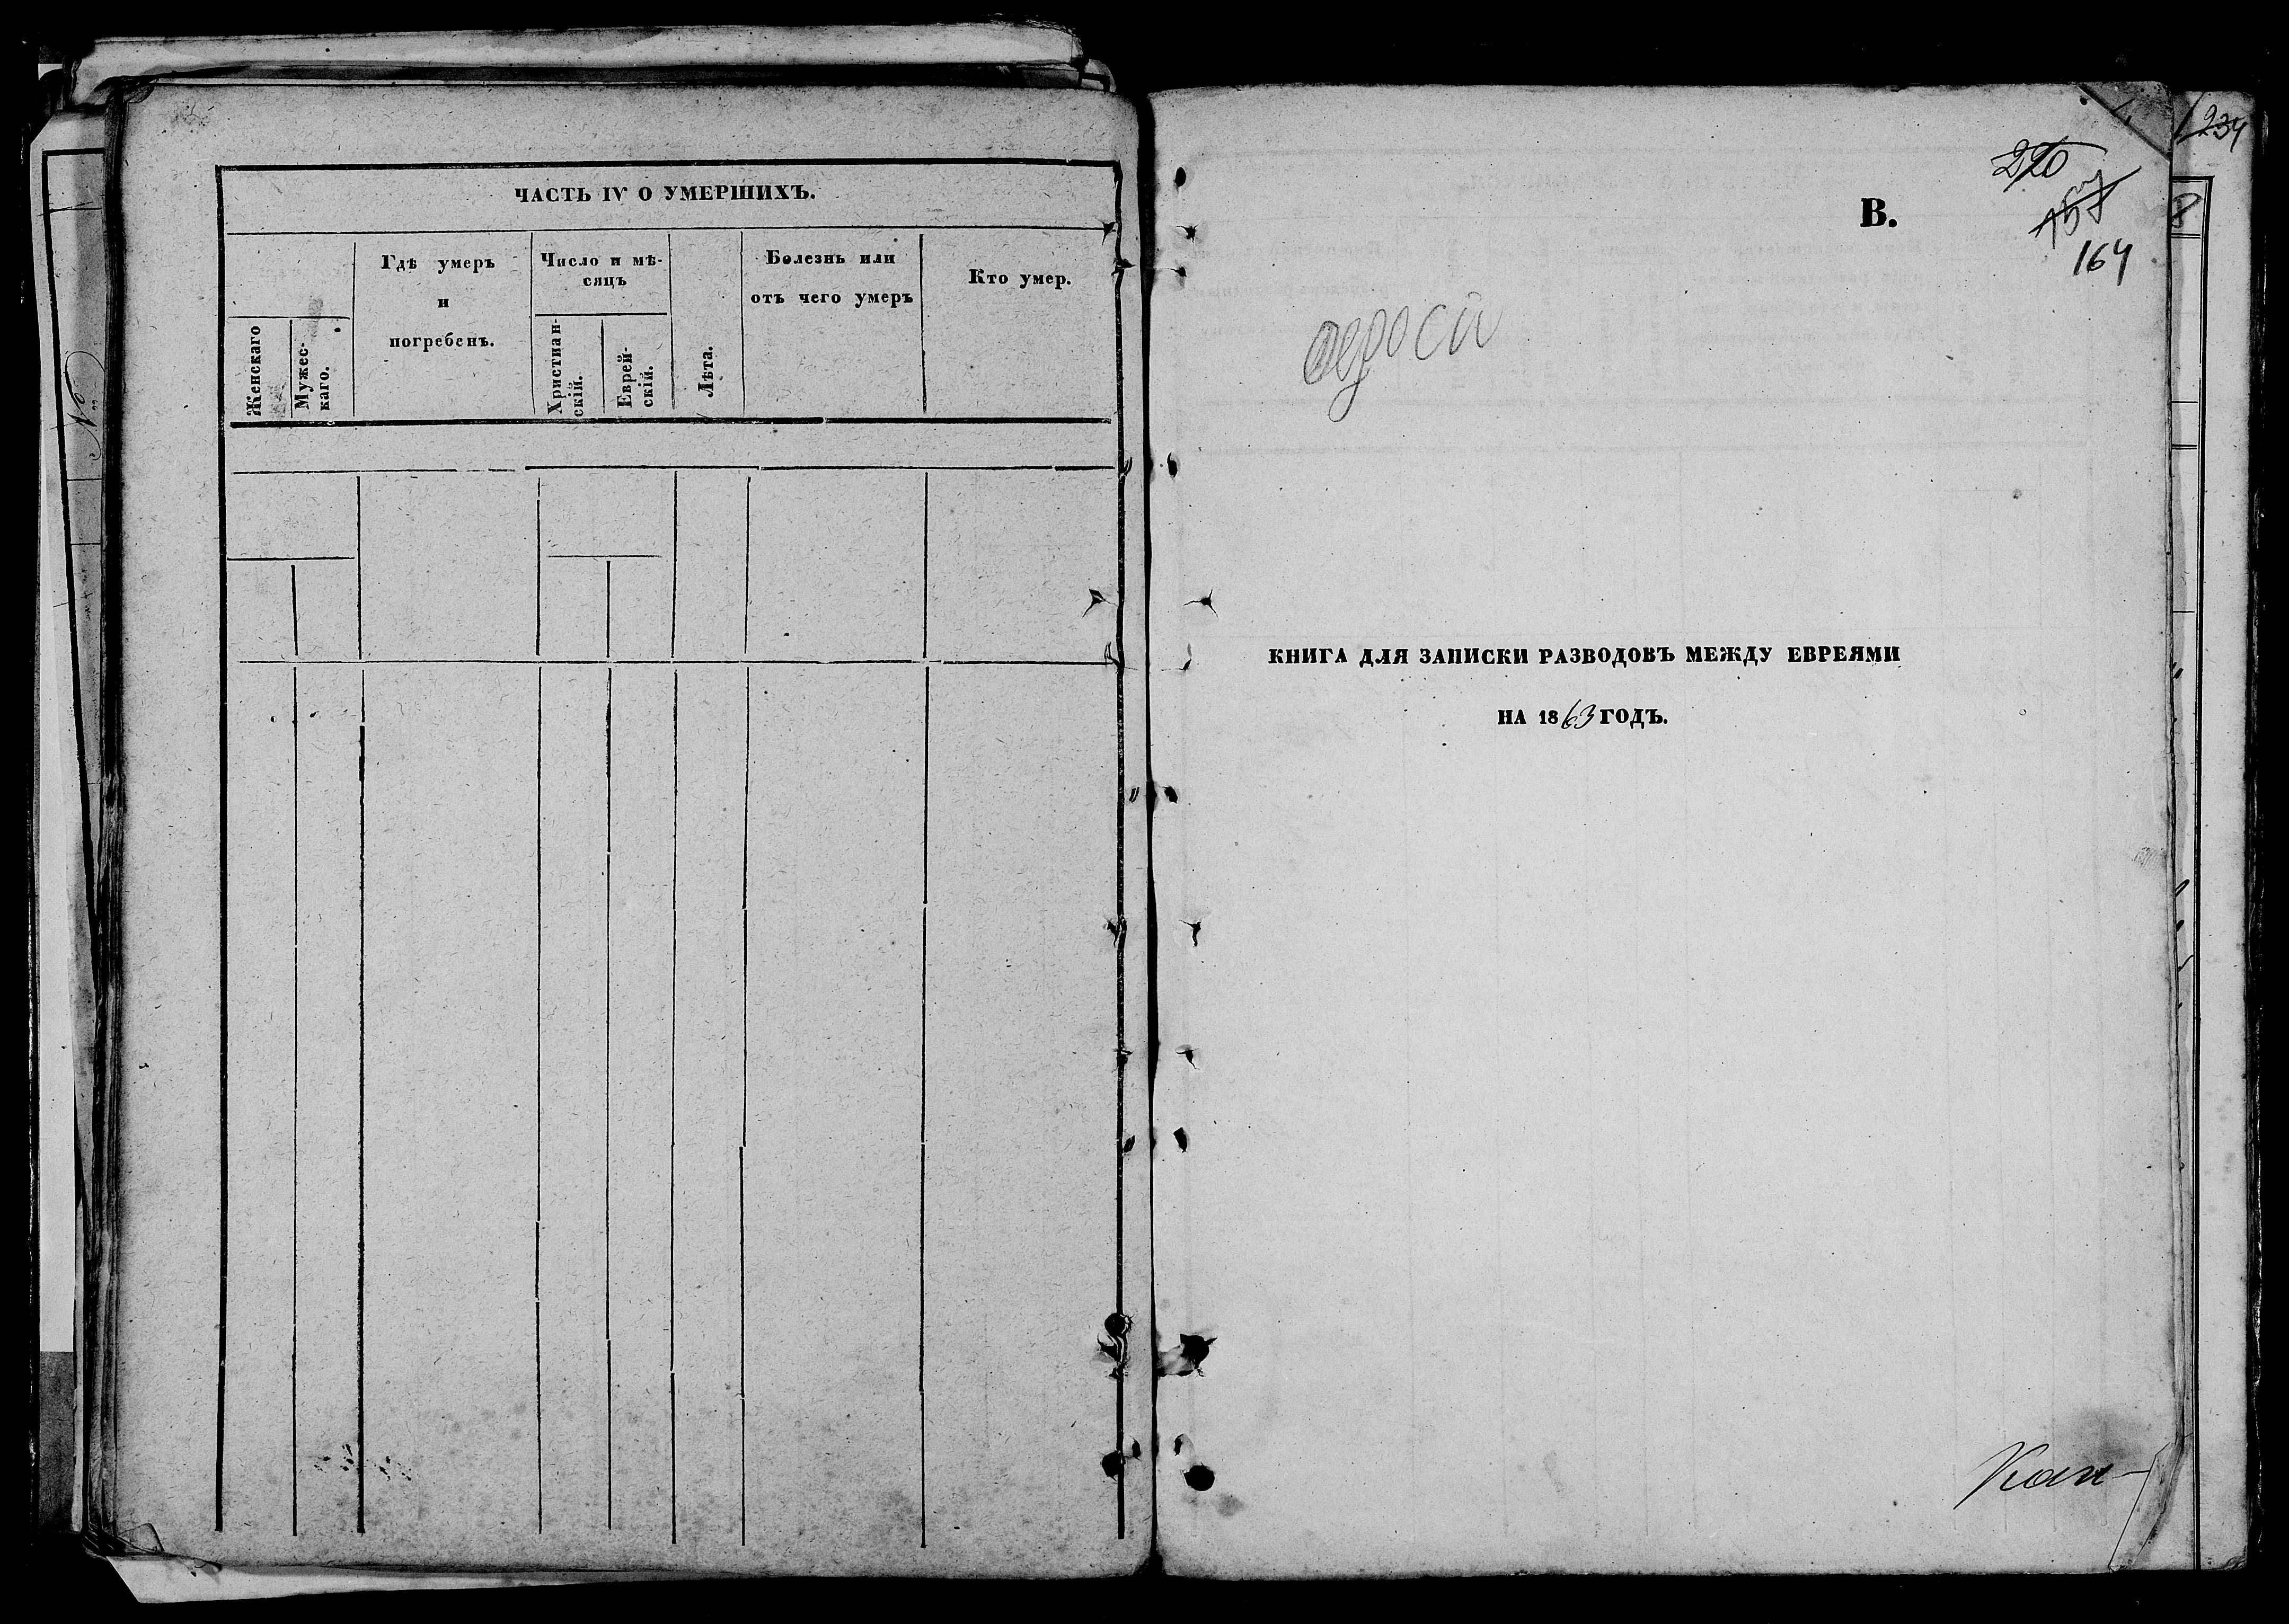 ЧАСТЬ IV О УМЕРШИХЪ.
Женскаго
Мужес-
каго.
Гдѣ умеръ
и
погребенъ.
Число и мѣ-
сяцъ
Христиан-
скій.
Еврей-
скій.
Лѣта.
Болезнь или
отъ чего умеръ
Кто умер.
234
220
157
164
В.
КНИГА ДЛЯ ЗАПИСКИ РАЗВОДОВЪ МЕЖДУ ЕВРЕЯМИ
НА 1863 ГОДЪ.